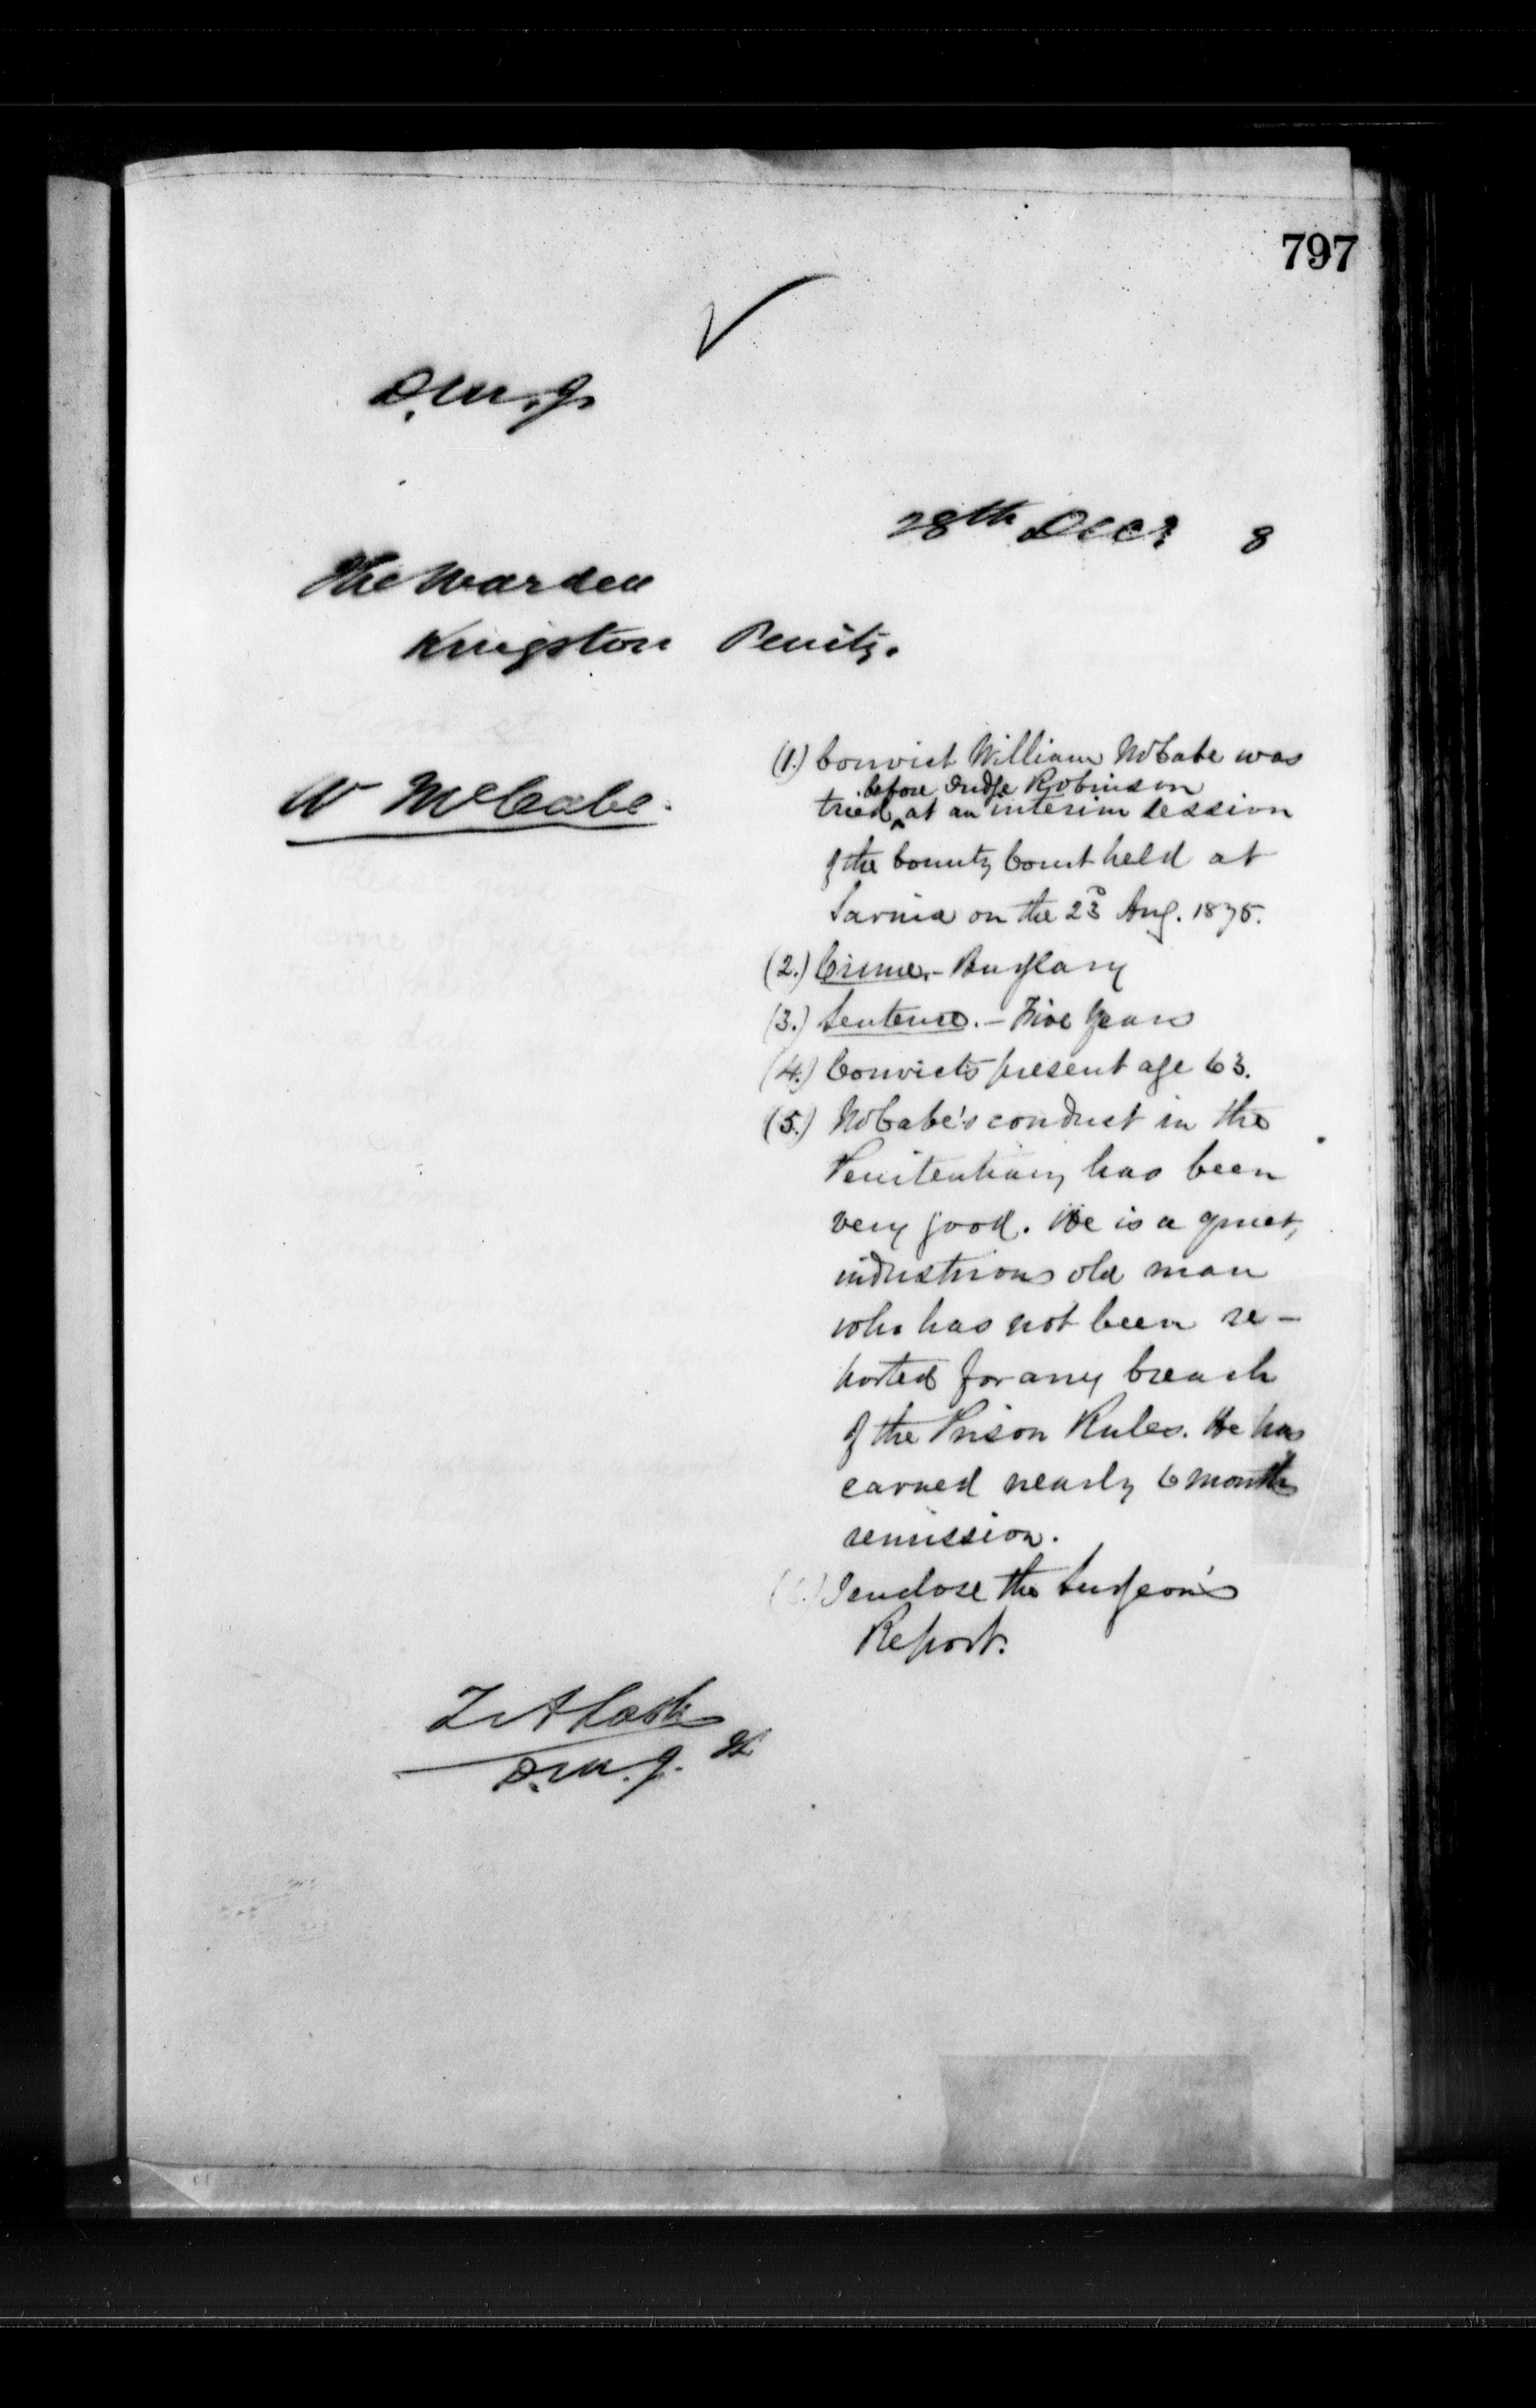 797
D.M.J.
28th Decr 8
The Warden
Kingston Penity.
W McCabe.
(1.) Convict William McCabe was
before Judge Robinson
tried ^ at an interim session
of the County Court held at
Sarnia on the 23d Aug. 1875.
(2.) Crime. - Burglary
(3.) Sentence. - Five Years
(4.) Convicts present age 63.
(5.) McCabe's conduct in the
Penitentiary has been
very good. He is a quiet,
industrious old man
who has not been re-
ported for any breach
of the Prison Rules. He has
earned nearly 6 months
remission.
I enclose the Surgeon's
Report.
D.M.J.